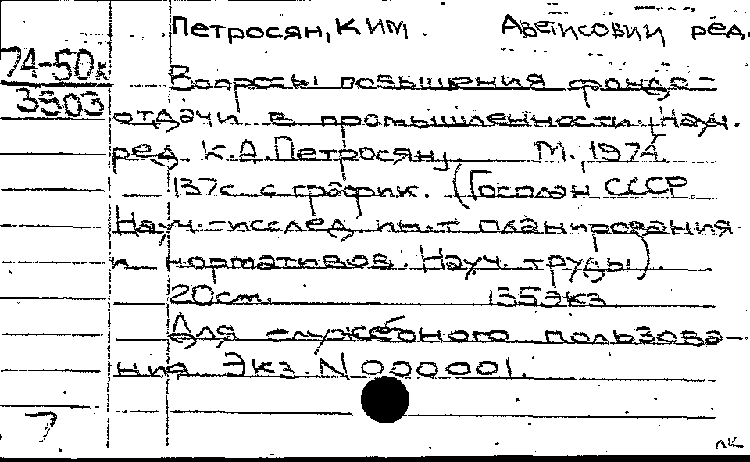 Петросян, Ким Аветисович ред.
74-50к
3303
Вопросы повышения фондо-
отдачи в промышленности. Науч.
ред. К.А. Петросян. М., 1974.
137с. с график. (Госплан СССР
Науч.-исслед. ин-т планирования
и нормативов. Науч. труды).
20см. 135экз
Для служебного пользова-
ния Экз. N 000001.
7
лк